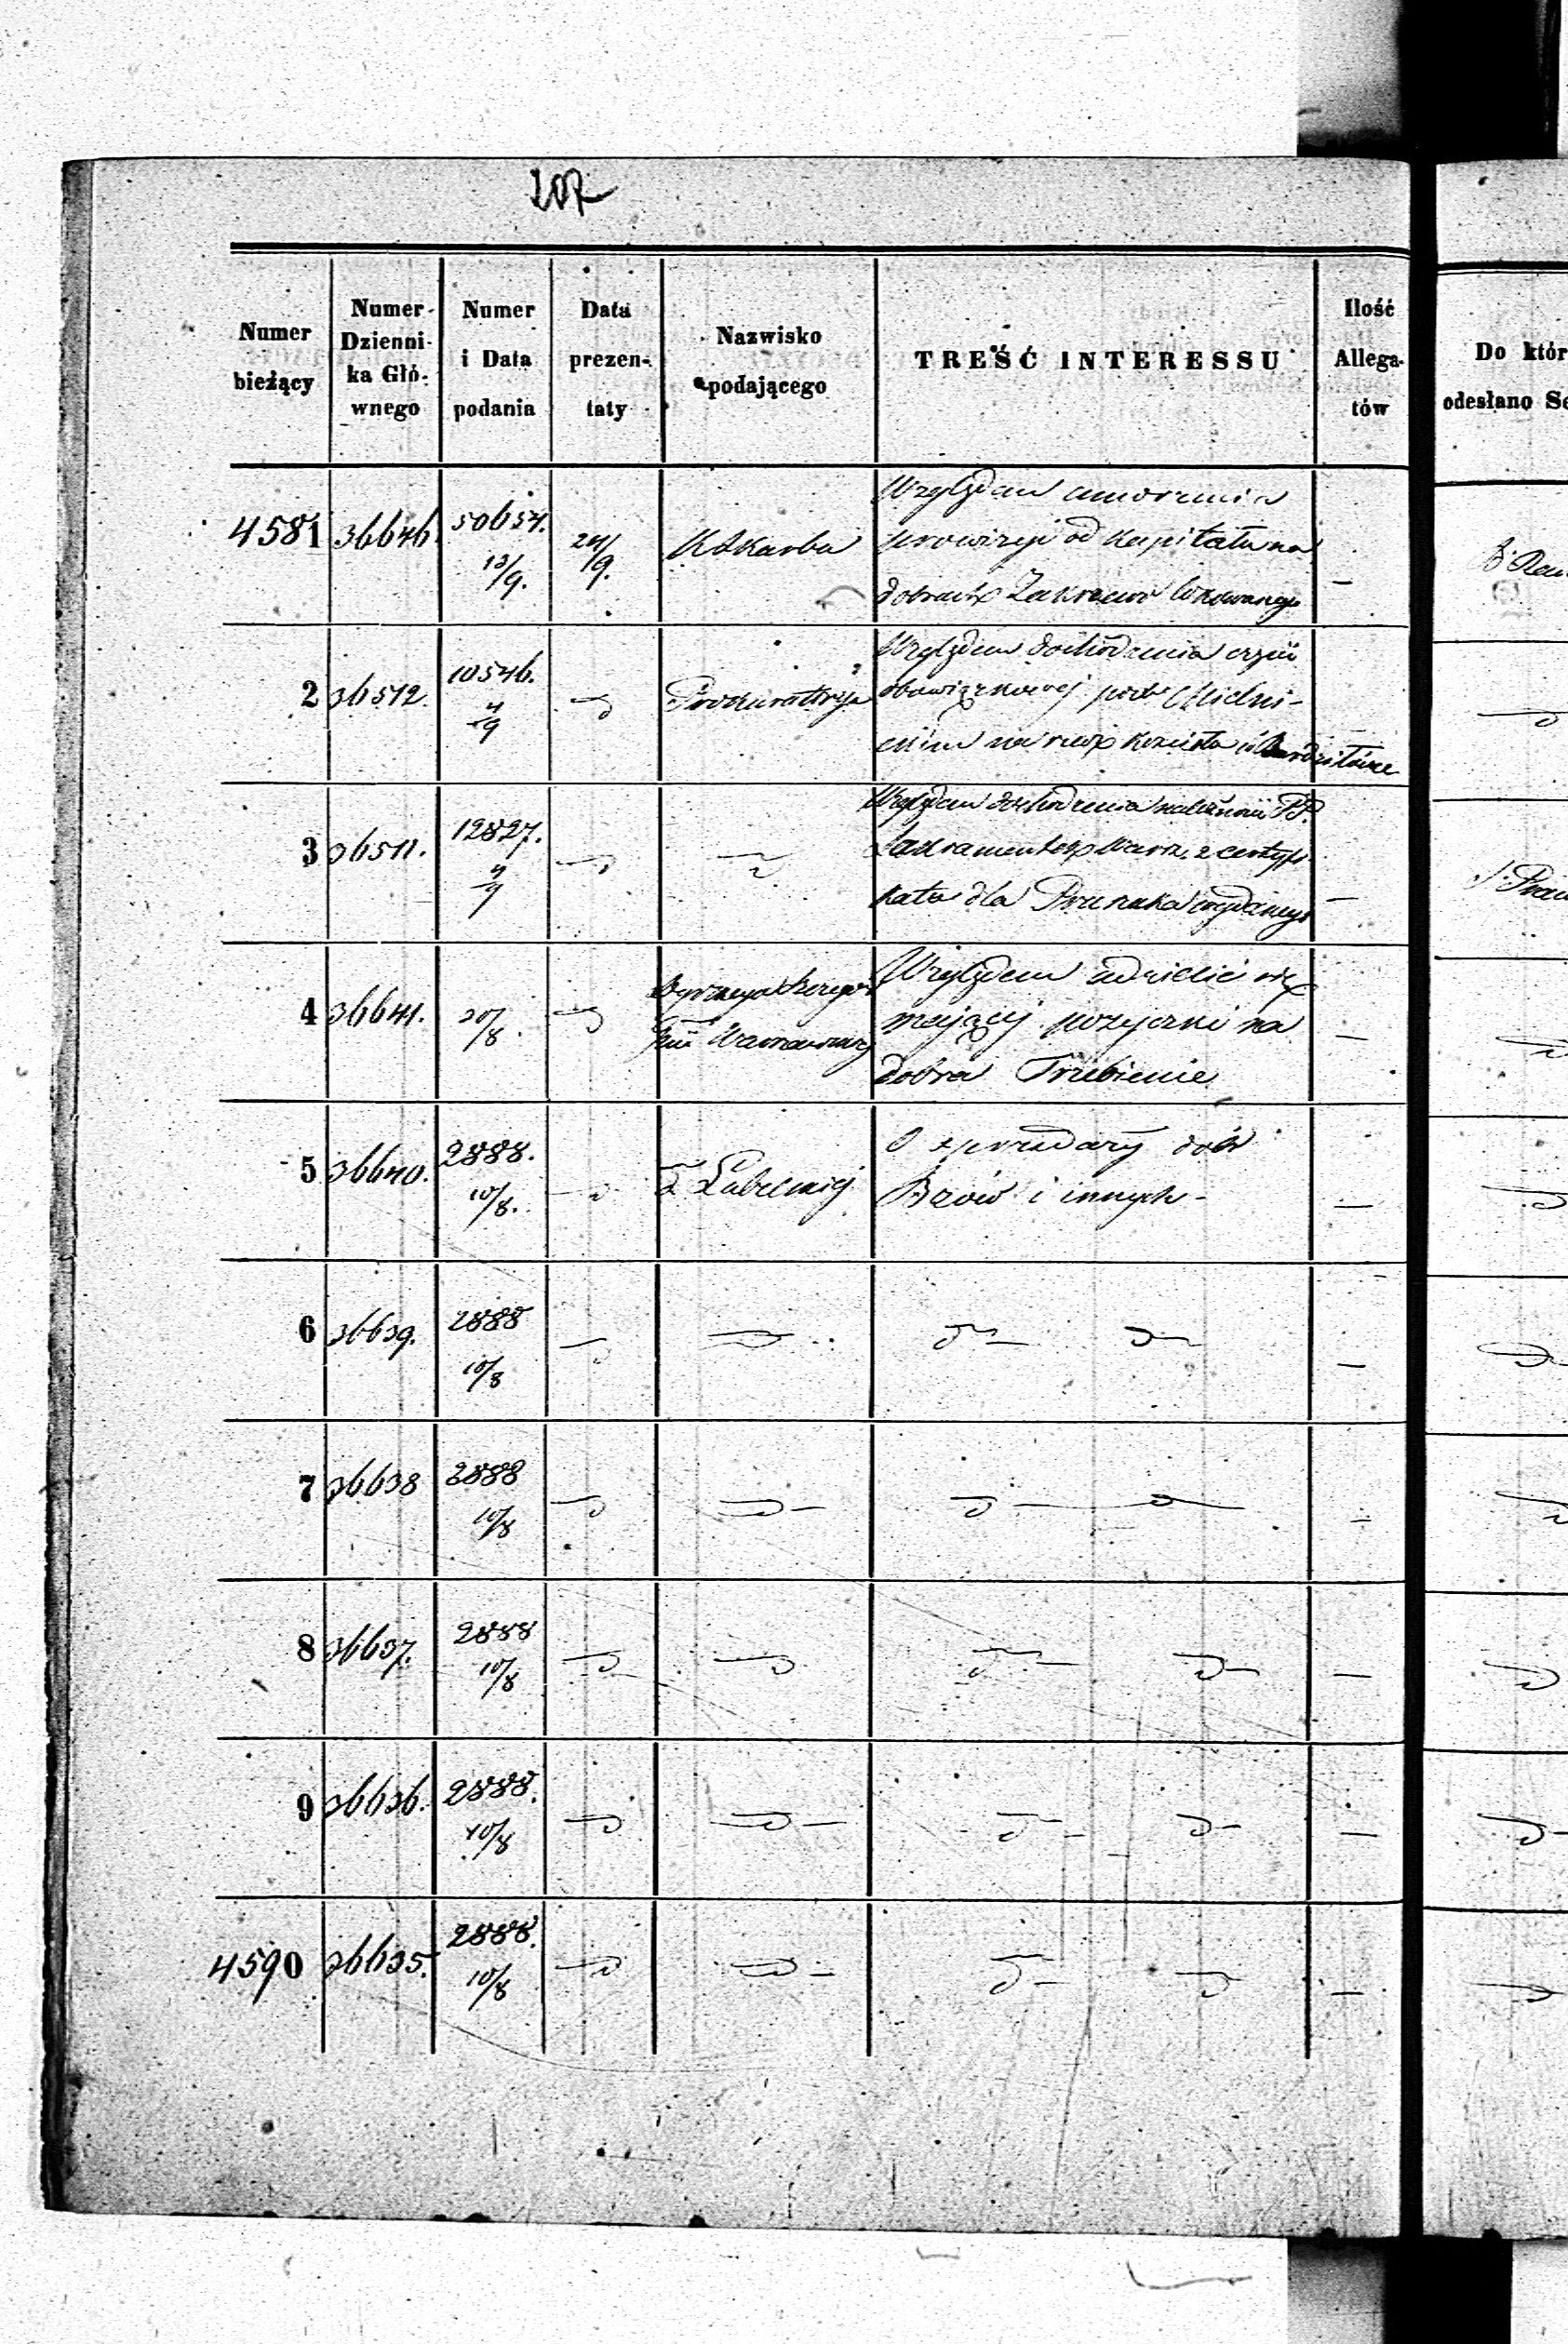 207
Numer bieżący | Numer Dzienni- ka Głó- wnego | Numer i Data podania | Data prezen- taty | Nazwisko podającego | TREŚĆ INTERESSU | Ilość Allega- tów | Do któr
odesłano Se
4581 36646. 50654. 13/9. 24/9. K. Skarbu
Względem umorzenia
prowizyi od kapitału na
dobrach Zakrzewo lokowanego —
2 36512. 10546. 4/9 Prokuratorya
Względem dochodzenia części
obowiązkowej
na rzecz kościoła
3 36511. 12827. 4/9
Względem dochodzenia należności PP.
Sakramentek Warsz. z certyfi
katu dla wydanego —
4 36641. 20/8.
Dyrekcya Szczegół
Gub Warszawskiej
Względem udzielić się
mającej pożyczki na
dobra Trzebienie —
5 36640. 2888. 10/8. d Lubelskiej
O sprzedaży dóbr
i innych - —
6 36639. 2888 10/8 d d —
7 36638 2888 10/8 d d —
8 36637. 2888 10/8 d d —
9 36636. 2888. 10/8 d d —
4590 36635. 2888. 10/8 d d —